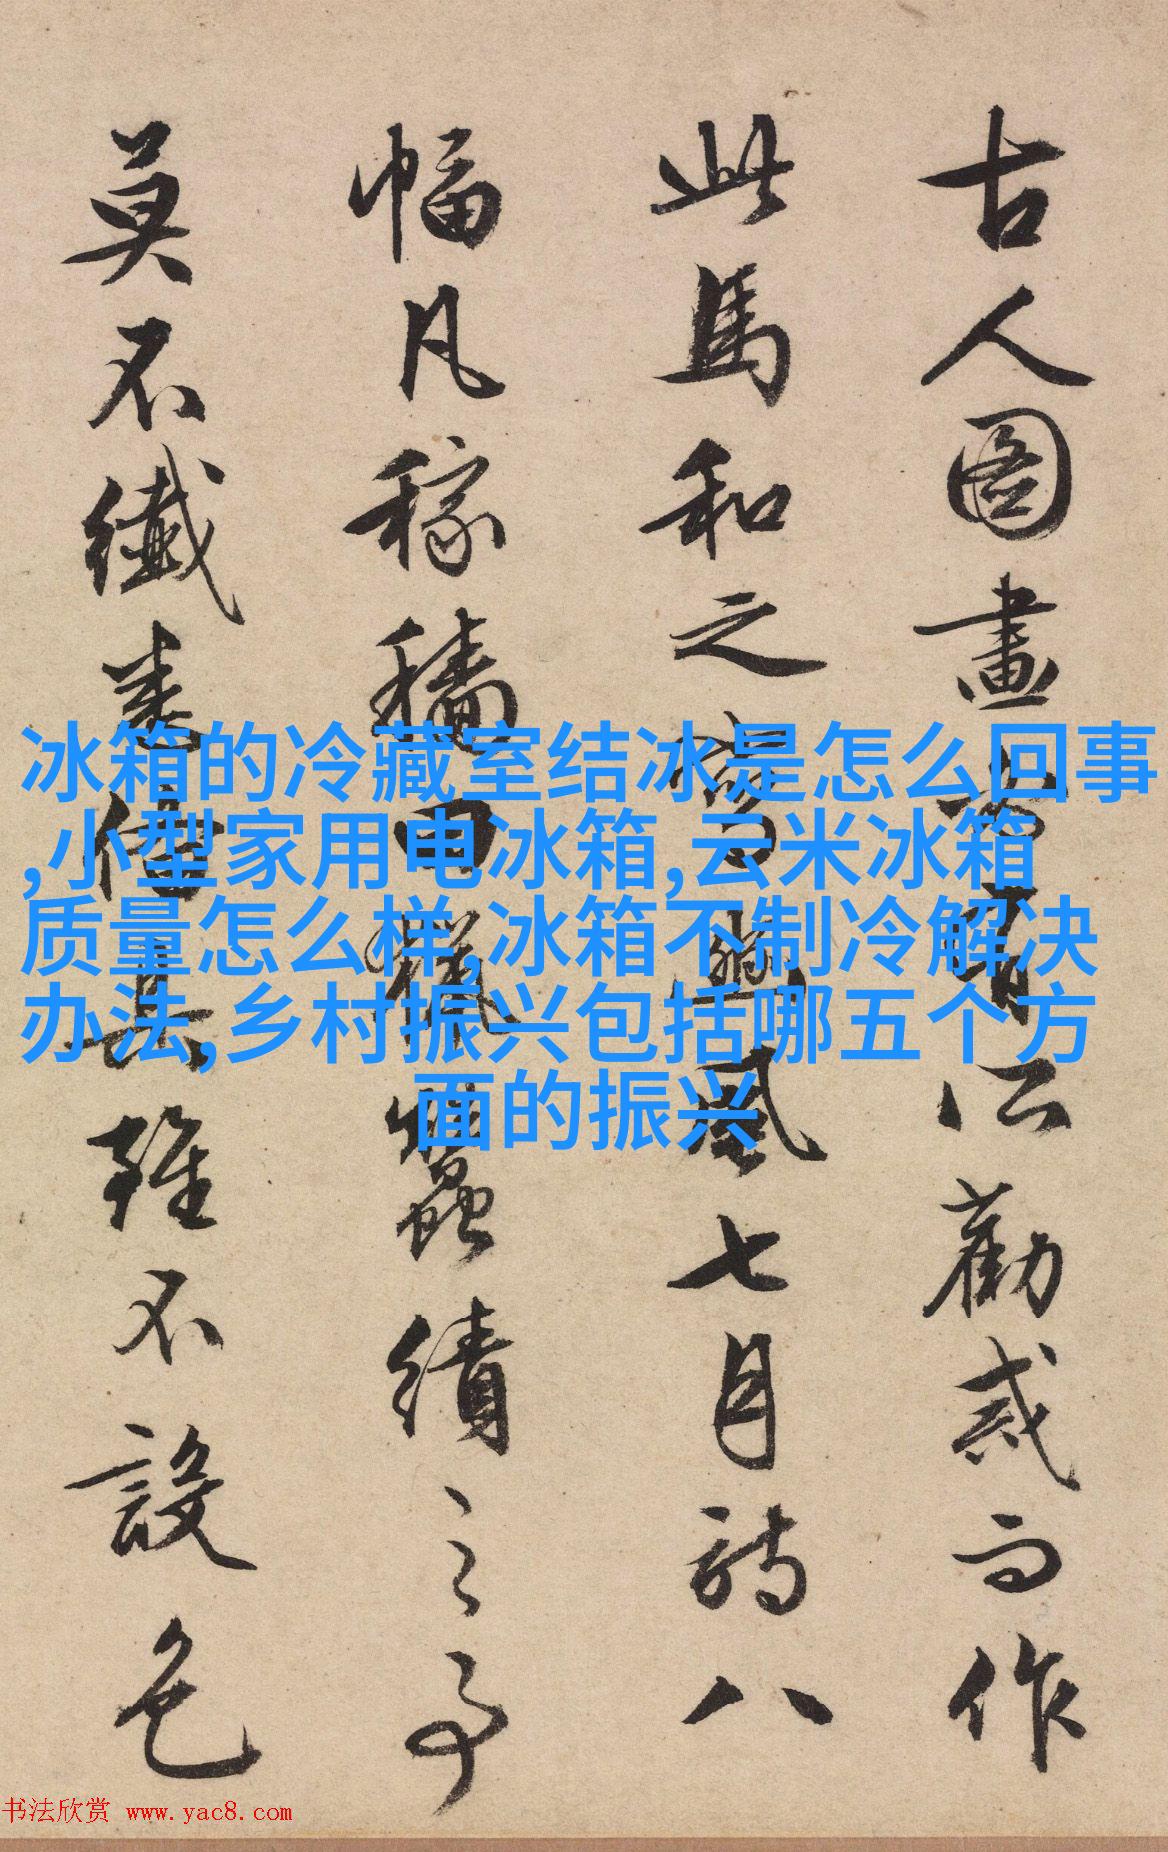 古人圖畫皆有以勸戒而作
此馬和之寫豳風七月詩八
幅凡稼穡田獵蠶績之事
莫不纖悉備具雖不設色
冰箱的冷藏室结冰是怎么回事
,小型家用电冰箱,云米冰箱
质量怎么样,冰箱不制冷解决
办法,乡村振兴包括哪五个方
面的振兴
书法欣赏 www.yac8.com